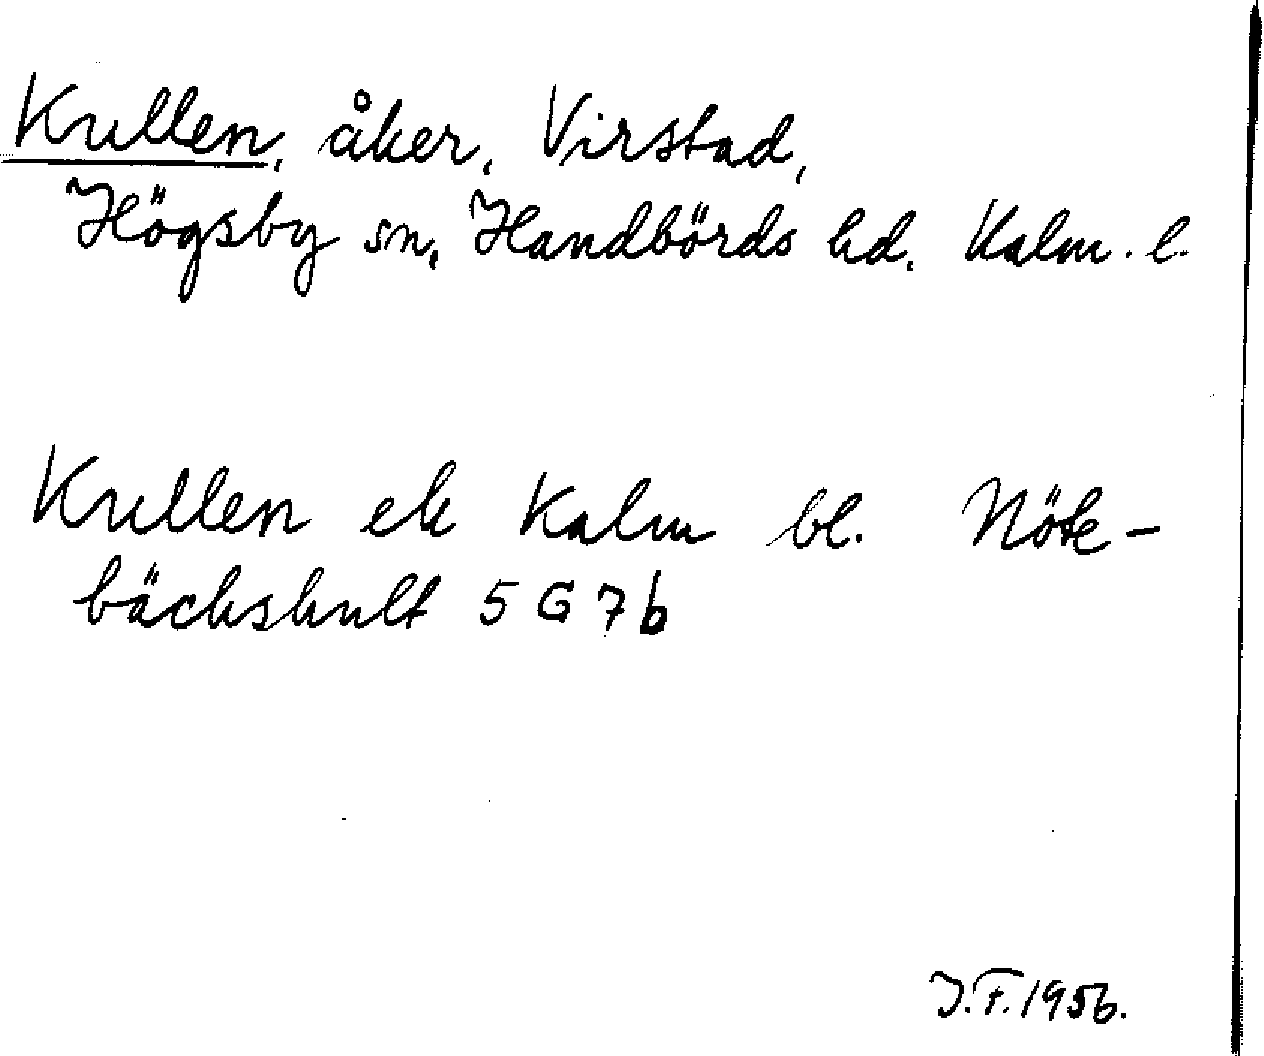 Kullen, åker, Virstad,
Högsby sn, Handbörds hd, Kalm. l.
Kullen ek Kalm bl. Nöte-
bäckshult 5 G 7 b
J.F. 1956.